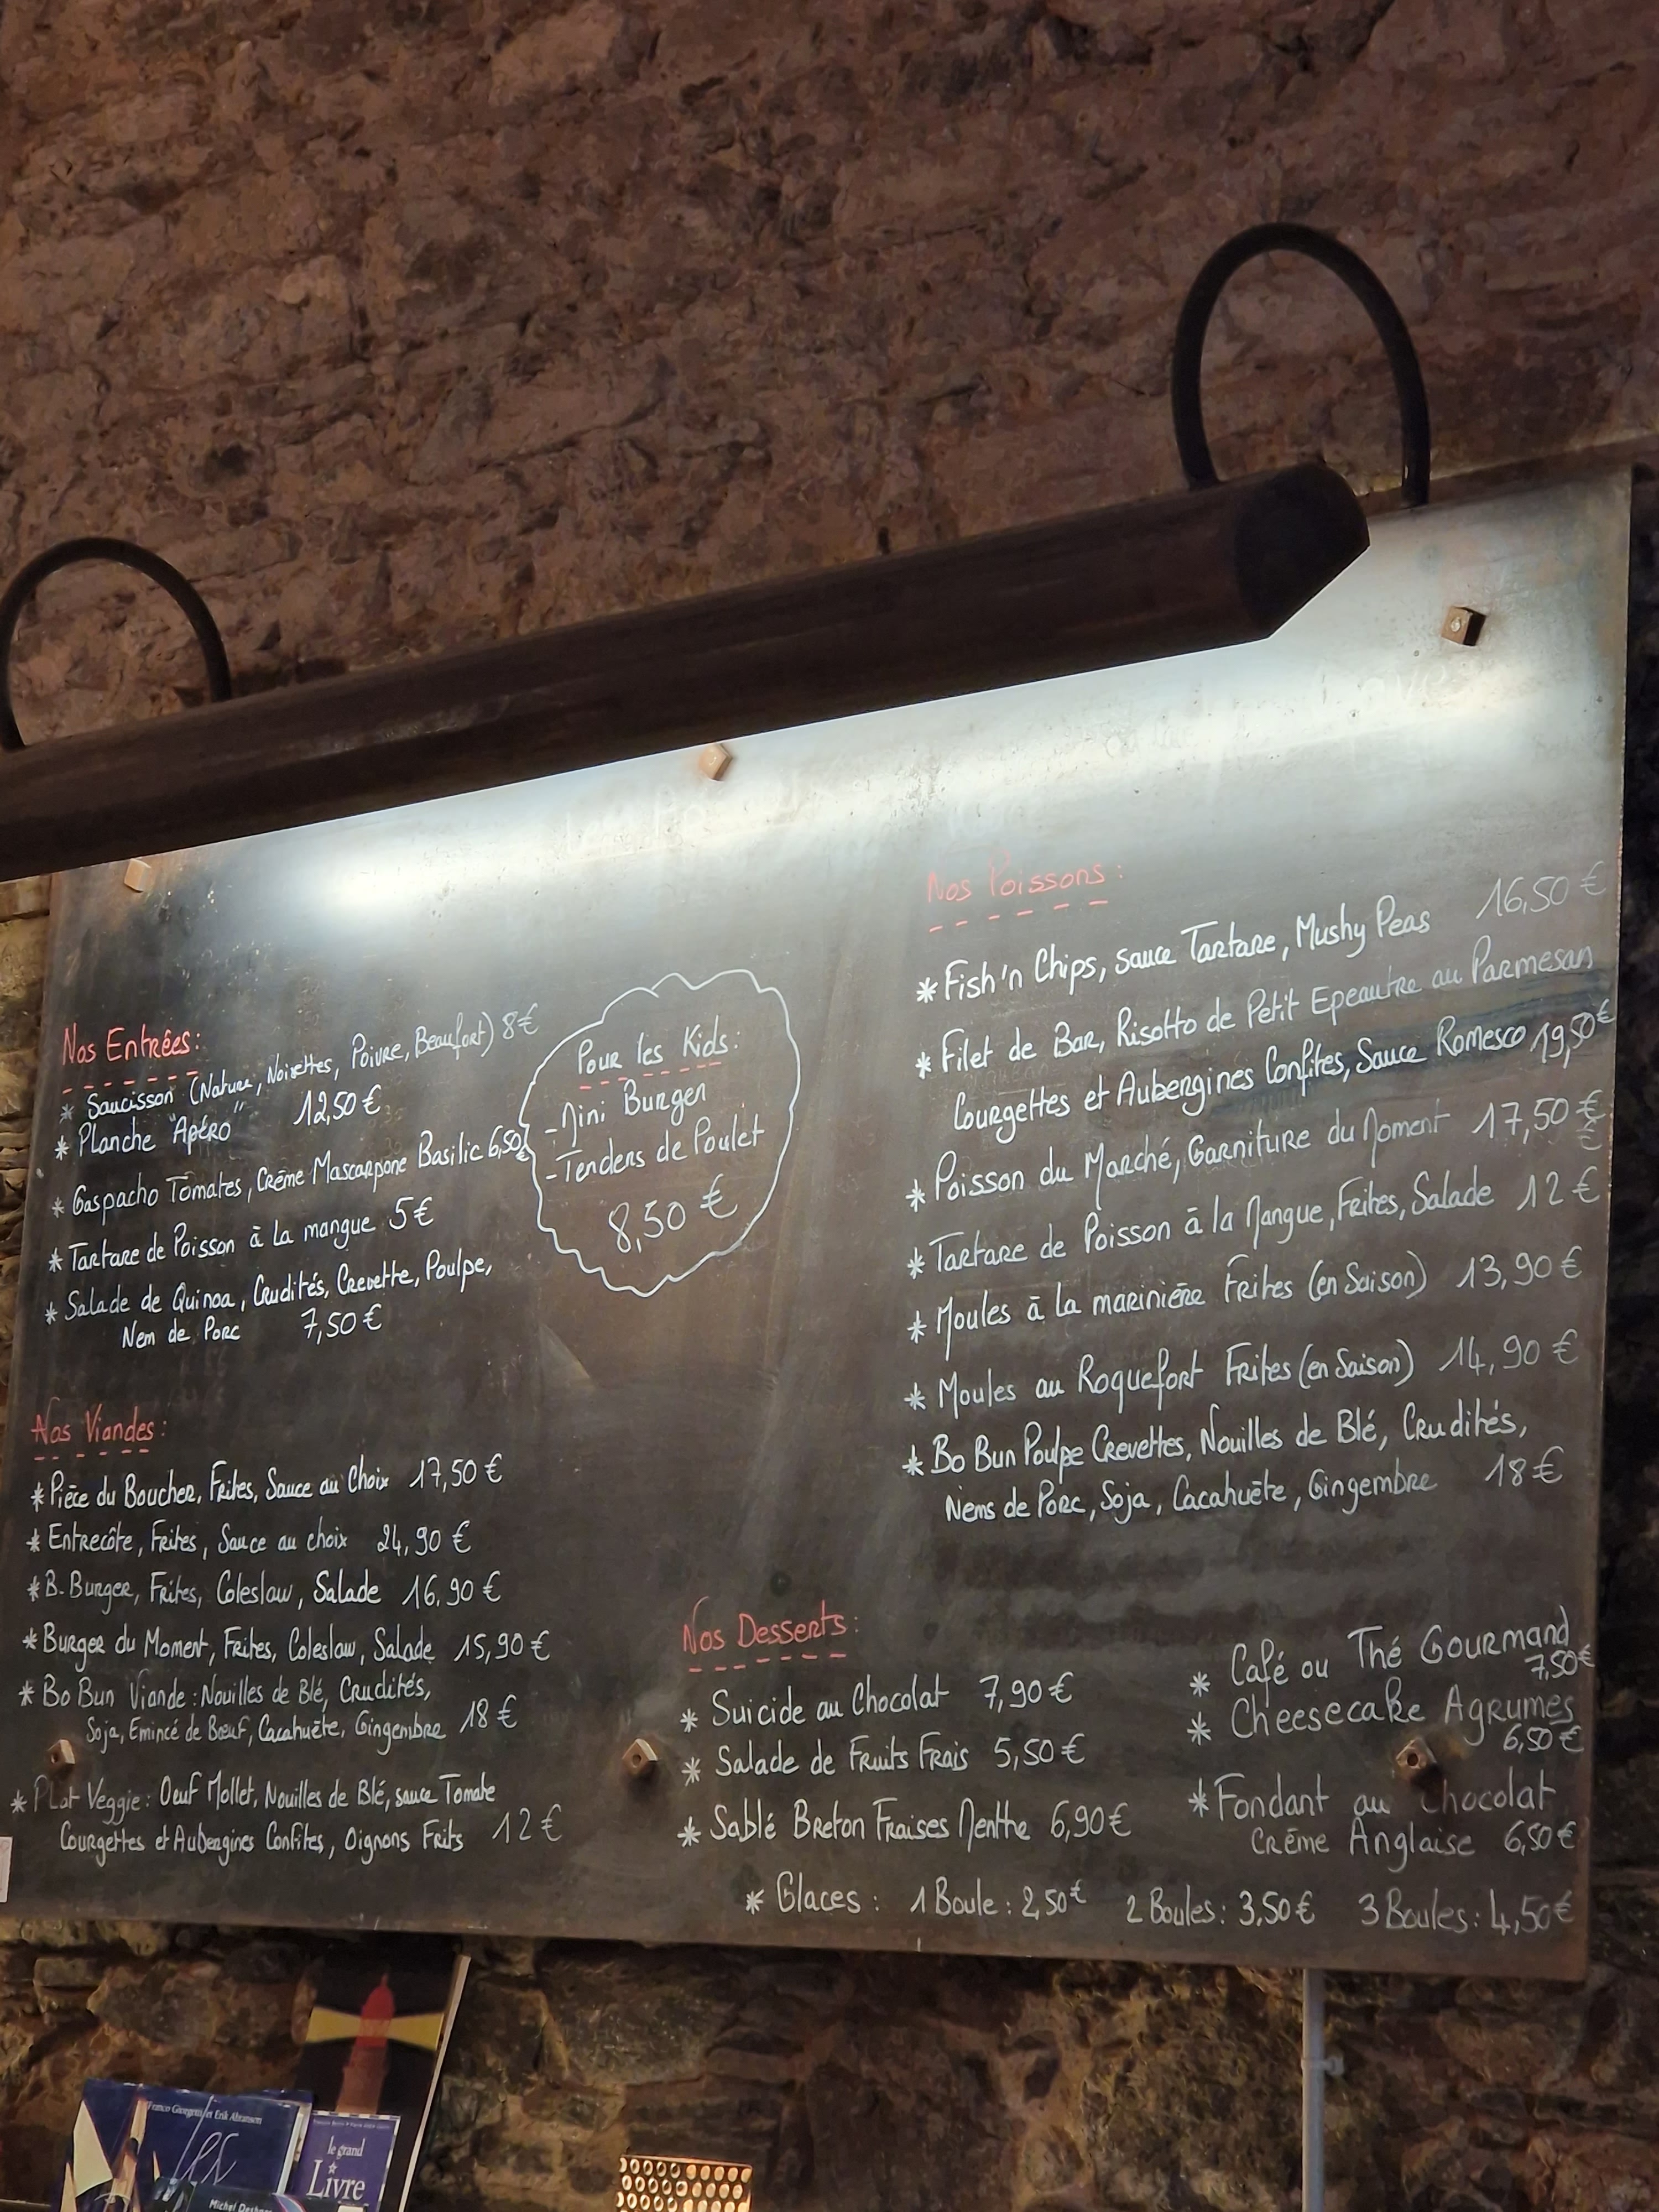 Nos Entrées:
* Saucisson (Nature, Noisettes, Poivre, Beaufort) 8€
* Planche "Apéro" 12,50 €
* Gaspacho Tomates, Crème Mascarpone Basilic 6,50€
* Tartare de Poisson à La mangue 5€
* Salade de Quinoa, Crudités, Crevette, Poulpe,
Nem de Porc 7,50 €
Pour les Kids:
- Mini Burger
- Tenders de Poulet
8,50 €
Nos Viandes:
* Pièce du Boucher, Frites, Sauce au Choix 17,50 €
* Entrecôte, Frites, Sauce au choix 24,90 €
* B.Burger, Frites, Coleslaw, Salade 16.90 €
* Burger du Moment, Frites, Coleslaw, Salade 15,90 €
* Bo Bun Viande : Nouilles de Blé, Crudités,
Soja, Emincé de Bœuf, Cacahuète, Gingembre 18 €
* Plat Veggie : Oeuf Mollet, Nouilles de Blé, sauce Tomate
Courgettes et Aubergines Confites, Oignons Frits 12 €
Nos Poissons :
* Fish'n Chips, sauce Tartare, Mushy Peas 16,50 €
* Filet de Bar, Risotto de Petit Epeautre au Parmesan
Courgettes et Aubergines Confites, Sauce Romesco 19,50€
* Poisson du Marché, Garniture du Moment 17,50 €
* Tartare de Poisson à la Mangue, Frites, Salade 12 €
* Moules à La marinière Frites (en Saison) 13,90 €
* Moules au Roquefort Frites (en Saison) 14,90 €
* Bo Bun Poulpe Crevettes, Nouilles de Blé, Crudités,
Nems de Porc, Soja, Cacahuète, Gingembre 18 €
Nos Desserts :
* Suicide au Chocolat 7,90 €
* Salade de Fruits Frais 5,50 €
* Sablé Breton Fraises Menthe 6,90 €
* Café ou Thé Gourmand
7,50€
* Cheesecake Agrumes
6,50 €
* Fondant au Chocolat
Crème Anglaise 6,50 €
* Glaces : 1 Boule : 2,50€ 2 Boules : 3,50 € 3 Boules : 4,50€
Franco Giorgetti et Erik Abranson
le grand
Livre
Michel